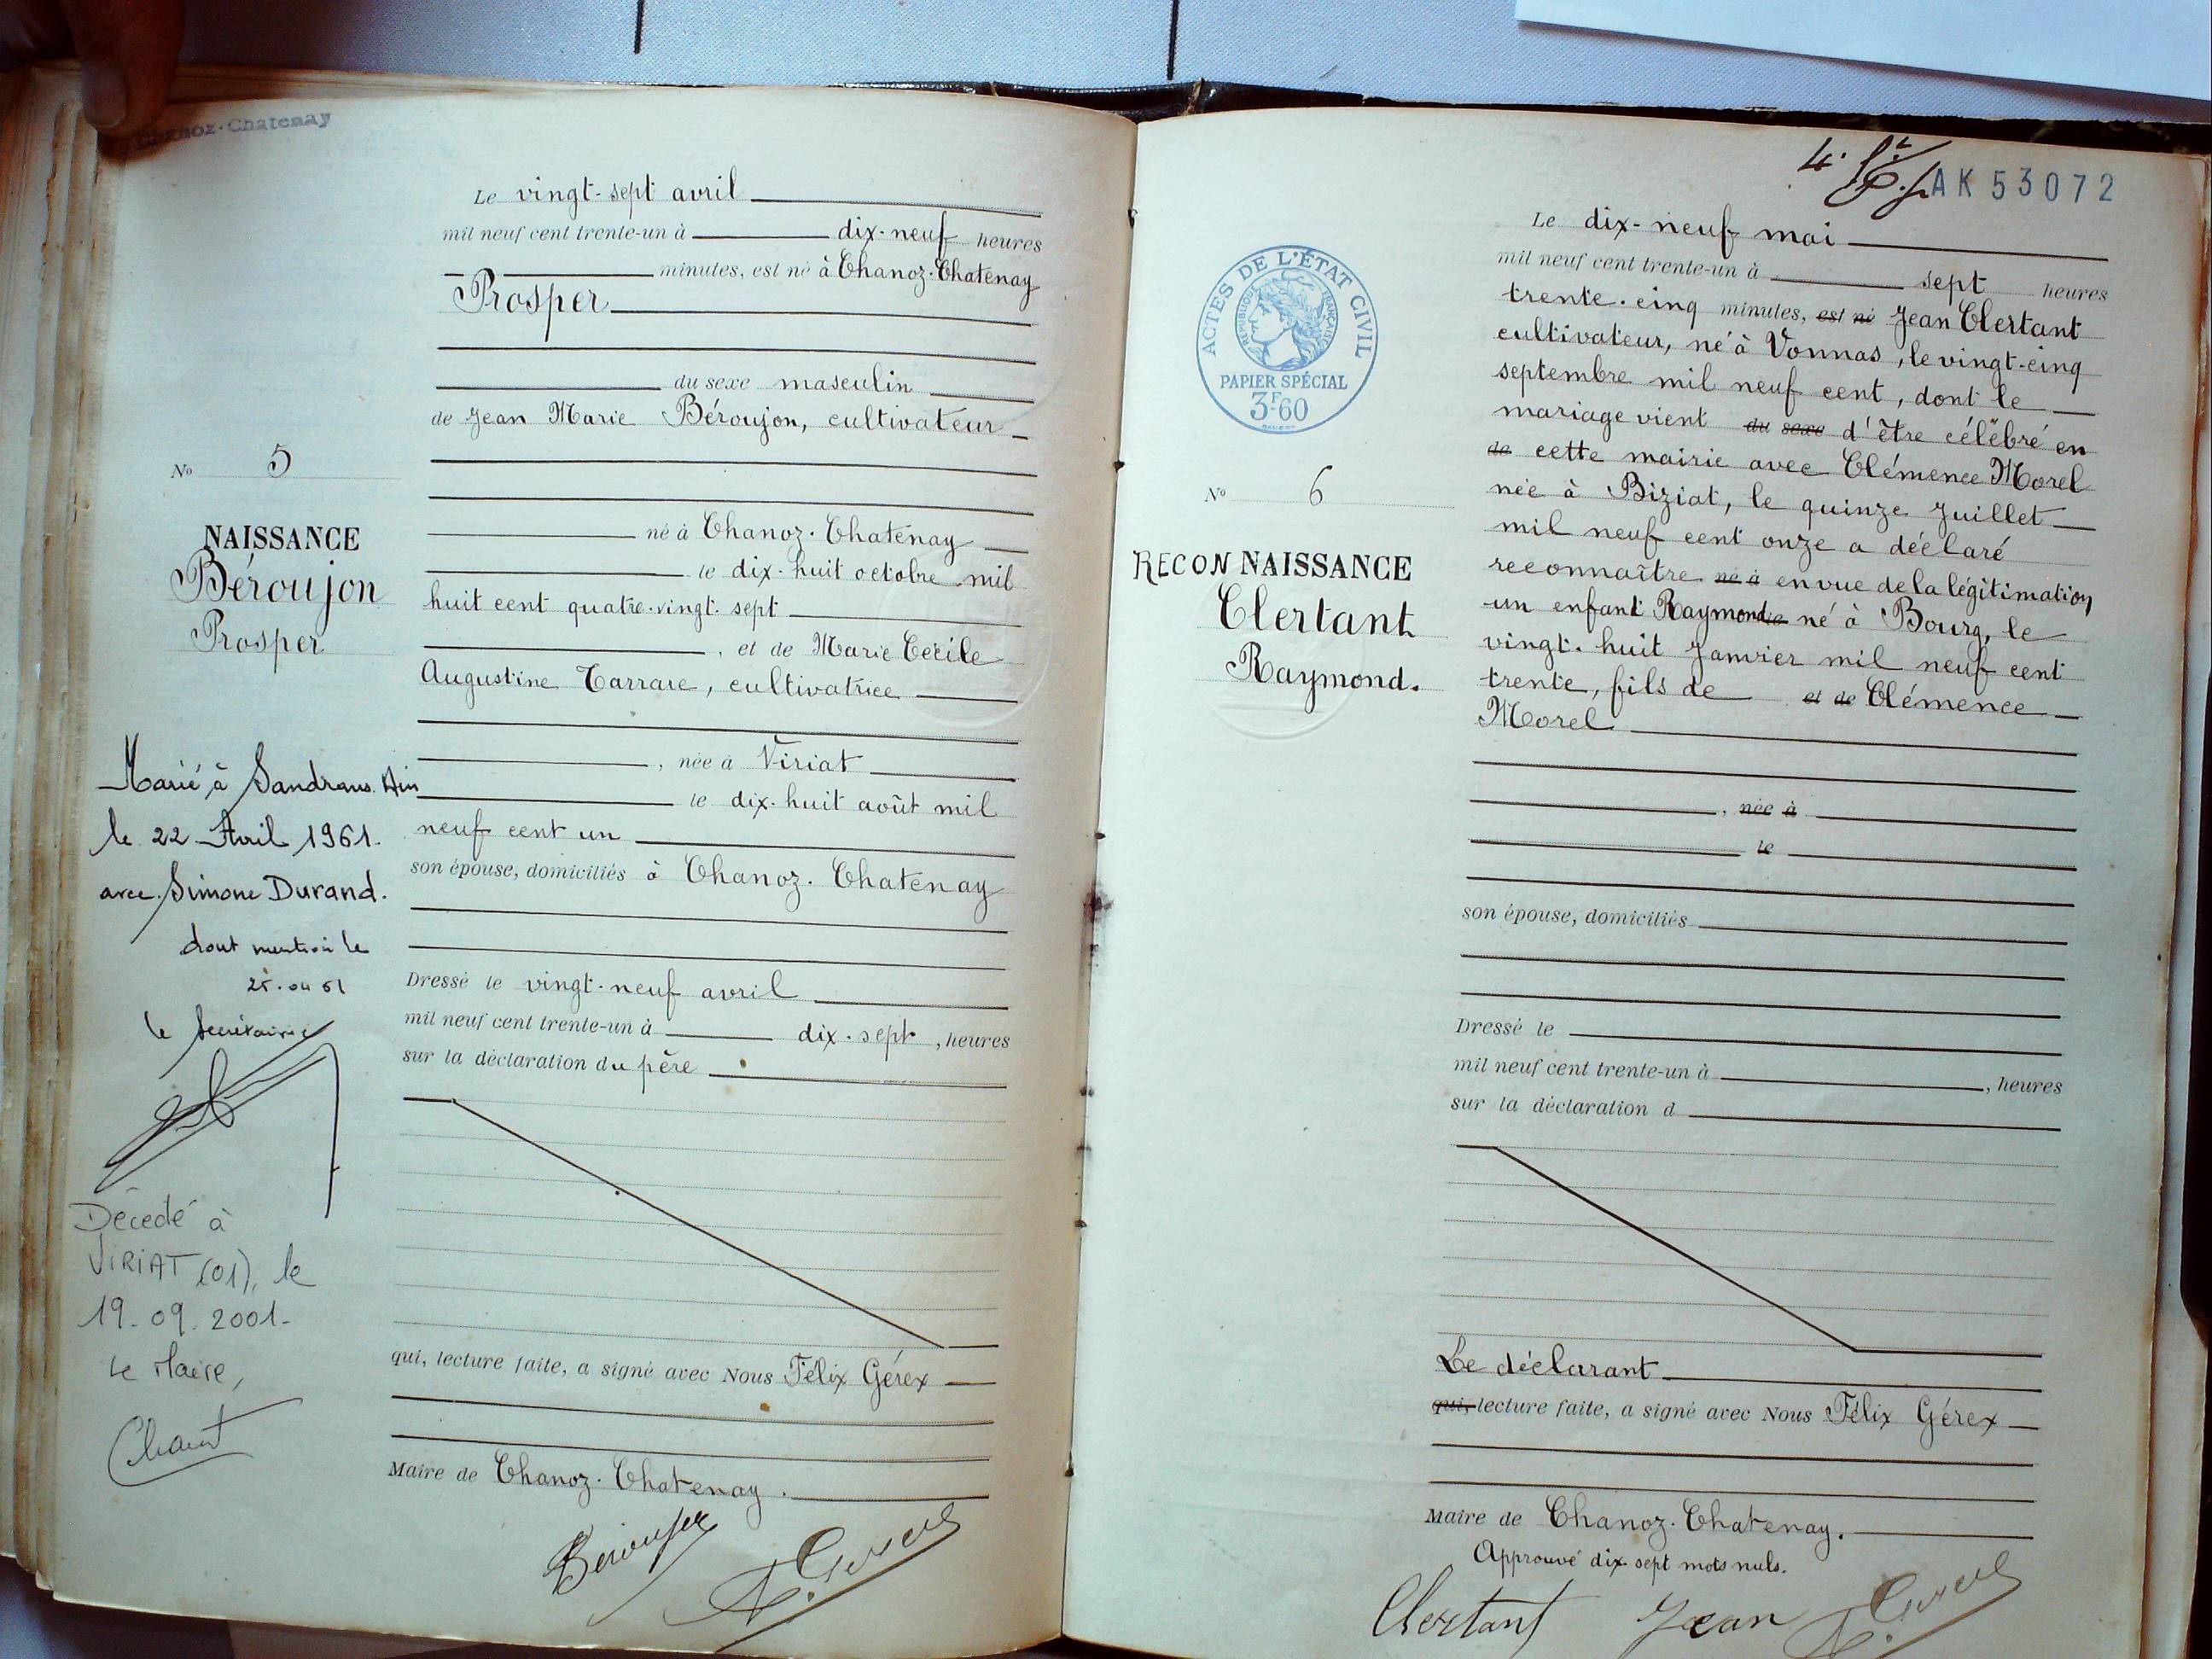 Chanoz-Chatenay
Le vingt-sept avril
mil neuf cent trente-un à dix-neuf heures
minutes, est né à Chanoz-Chatenay
Prosper
du sexe masculin
de Jean Marie Béroujon, cultivateur
né à Chanoz-Chatenay
le dix-huit octobre mil
huit cent quatre-vingt-sept
, et de Marie Cécile
Augustine Carraie, cultivatrice
, née à Viriat
le dix-huit août mil
neuf cent un
son épouse, domiciliés à Chanoz-Chatenay
Dressé le vingt-neuf avril
mil neuf cent trente-un à dix-sept, heures
sur la déclaration du père
qui, lecture faite, a signé avec Nous Félix Gérex
Maire de Chanoz-Chatenay.
No 5
NAISSANCE
Béroujon
Prosper
Marié à Sandrans Ain
le 22 Avril 1961.
avec Simone Durand.
dont mention le
le Secrétaire
Décedé à
VIRIAT (01), le
19-09-2001-
Le Maire,
4.
AK 53072
ACTES DE L'ÉTAT CIVIL
RÉPUBLIQUE FRANÇAISE
PAPIER SPÉCIAL
3F60
No 6
RECONNAISSANCE
Clertant
Raymond.
Le dix-neuf mai
mil neuf cent trente-un à sept heures
trente-cinq minutes, est né Jean Clertant
cultivateur, né à Vonnas, le vingt-cinq
septembre mil neuf cent, dont le
mariage vient du sexe d'être célébré en
de cette mairie avec Clémence Morel
née à Biziat, le quinze Juillet
mil neuf cent onze a déclaré
reconnaître né à en vue de la légitimation
un enfant Raymonde né à Bourg, le
vingt-huit Janvier mil neuf cent
trente, fils de et de Clémence
Morel
, née à
le
son épouse, domiciliés
Dressé le
mil neuf cent trente-un à , heures
sur la déclaration d
Le déclarant
qui, lecture faite, a signé avec Nous Félix Gérex
Maire de Chanoz-Chatenay.
Approuvé dix-sept mots nuls.
Clertant Jean